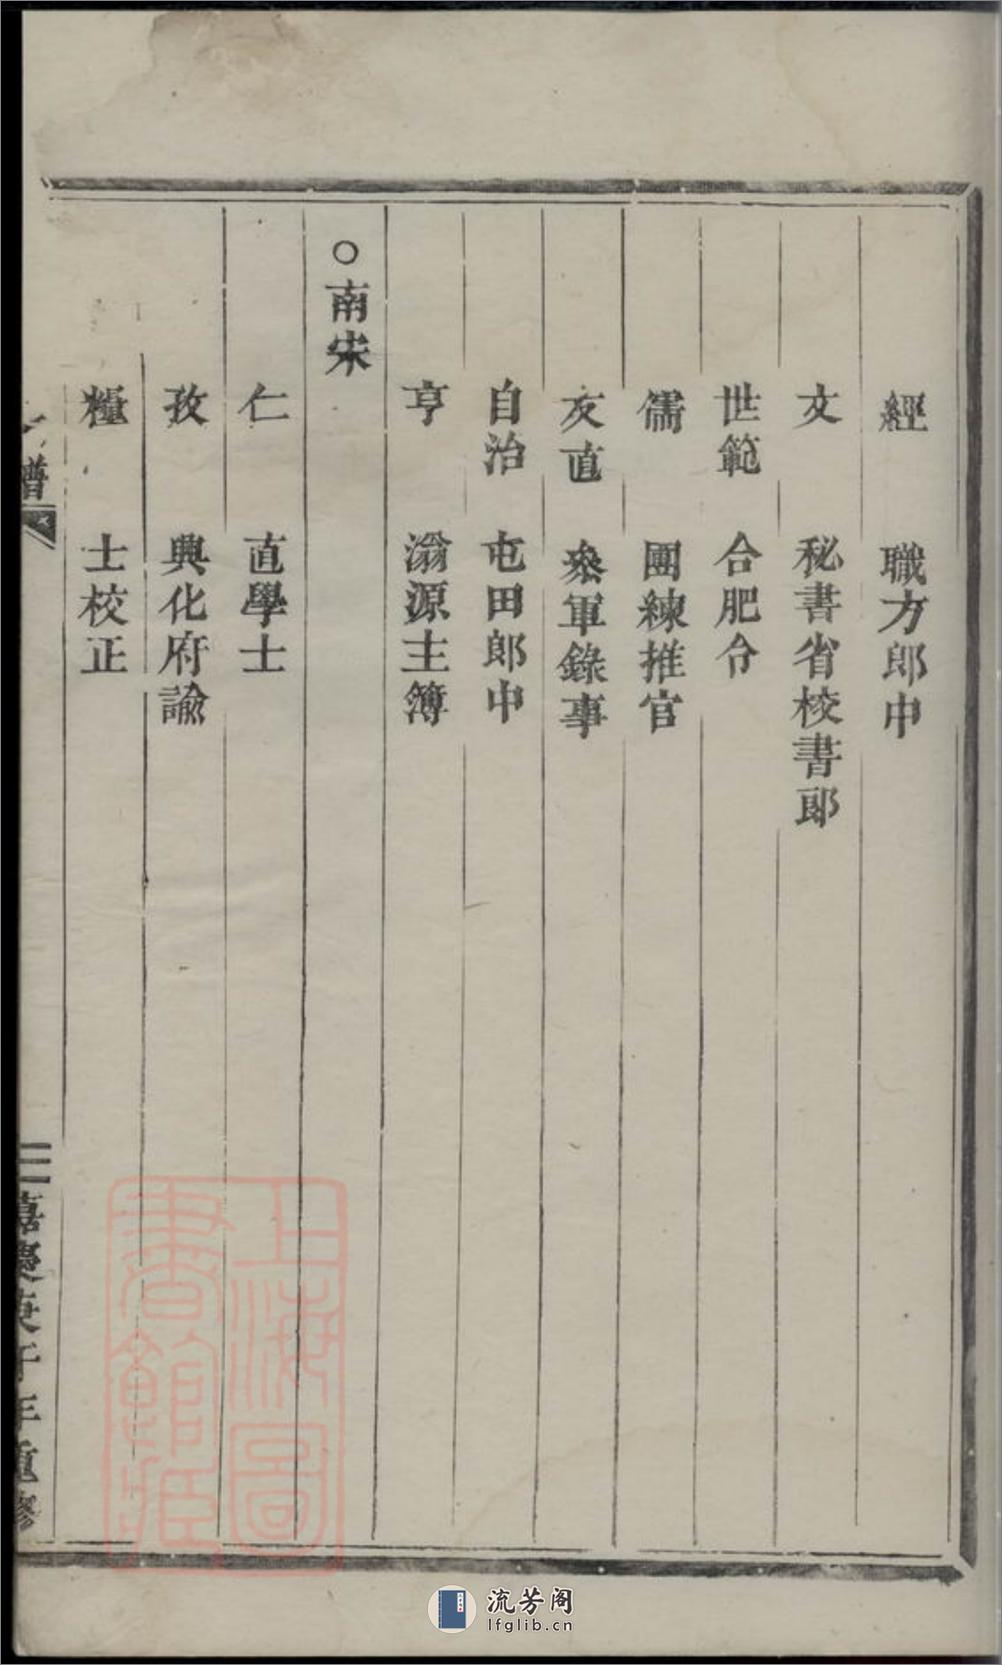 經 職方郎中
文 秘書省校書郎
世範 合肥令
儒 團練推官
友直 叅軍錄事
自治 屯田郎中
亨 滃源主簿
○南宋
仁 直學士
孜 興化府諭
糧 士校正
譜
三 嘉慶庚午年重修
上海圖書館藏
流芳阁
lfglib.cn